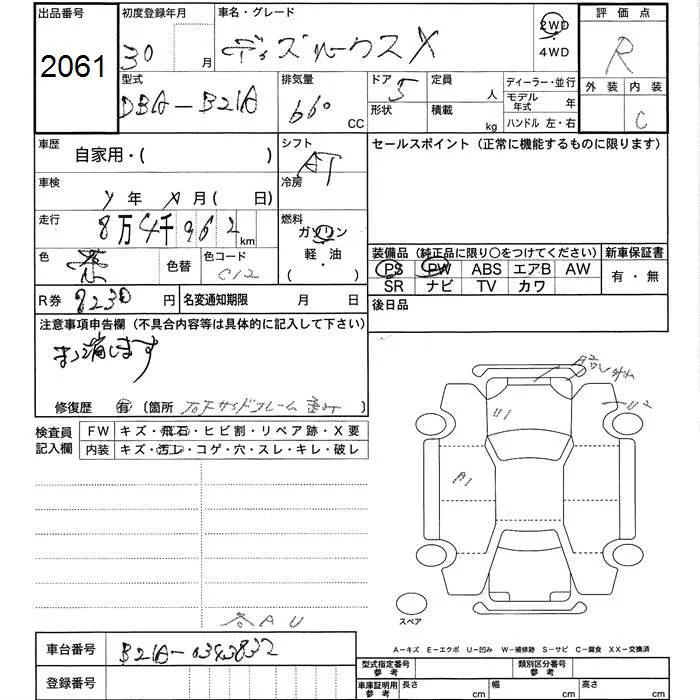 出品番号 初度登録年月 車名・グレード 評価点
2061 30 月 デイズルークス X 2WD 4WD R
型式 排気量 ドア 定員 ディーラー・並行 外装 内装
DBA-B21A 660 CC 5 形状 積載 人 kg モデル年式 年 ハンドル 左・右 C
車歴 自家用・( ) シフト AT セールスポイント(正常に機能するものに限ります)
車検 年 月( 日) 冷房
走行 8万4千962 km 燃料 ガソリン
色 色替 色コード 軽・油 ( ) 装備品(純正品に限り○をつけてください) 新車保証書
PS PW ABS エアB AW 有・無
SR ナビ TV カワ
R券 8230 円 名変通知期限 月 日 後日品
注意事項申告欄(不具合内容等は具体的に記入して下さい)
修復歴 有 (箇所 )
検査員 記入欄 FW キズ・飛石・ヒビ割・リペア跡・X要
内装 キズ・汚レ・コゲ・穴・スレ・キレ・破レ
U1
U2
A1
各AU
スペア
A-キズ E-エクボ U-凹み W-補修跡 S-サビ C-腐食 XX-交換済
車台番号 B21A-0343832
型式指定番号 参考 類別区分番号 参考
登録番号 車庫証明用 参考 長さ cm 幅 cm 高さ cm